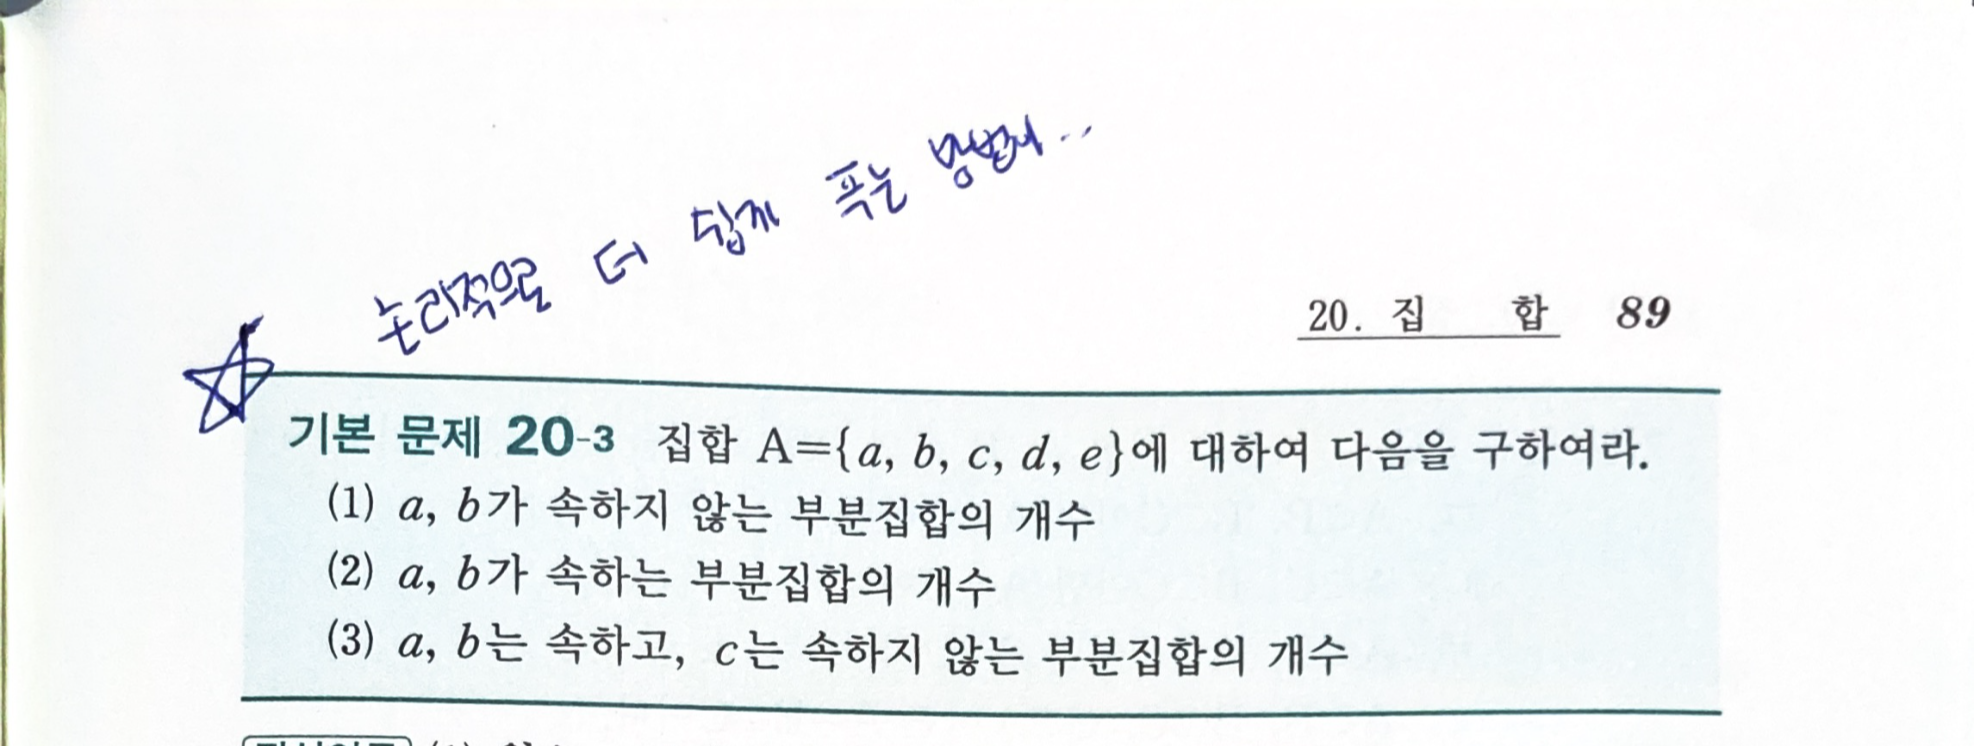 논리적으로 더 쉽게 푸는 방법..
20. 집 합 89
기본 문제 20-3 집합 A={a, b, c, d, e}에 대하여 다음을 구하여라.
(1) a, b가 속하지 않는 부분집합의 개수
(2) a, b가 속하는 부분집합의 개수
(3) a, b는 속하고, c는 속하지 않는 부분집합의 개수